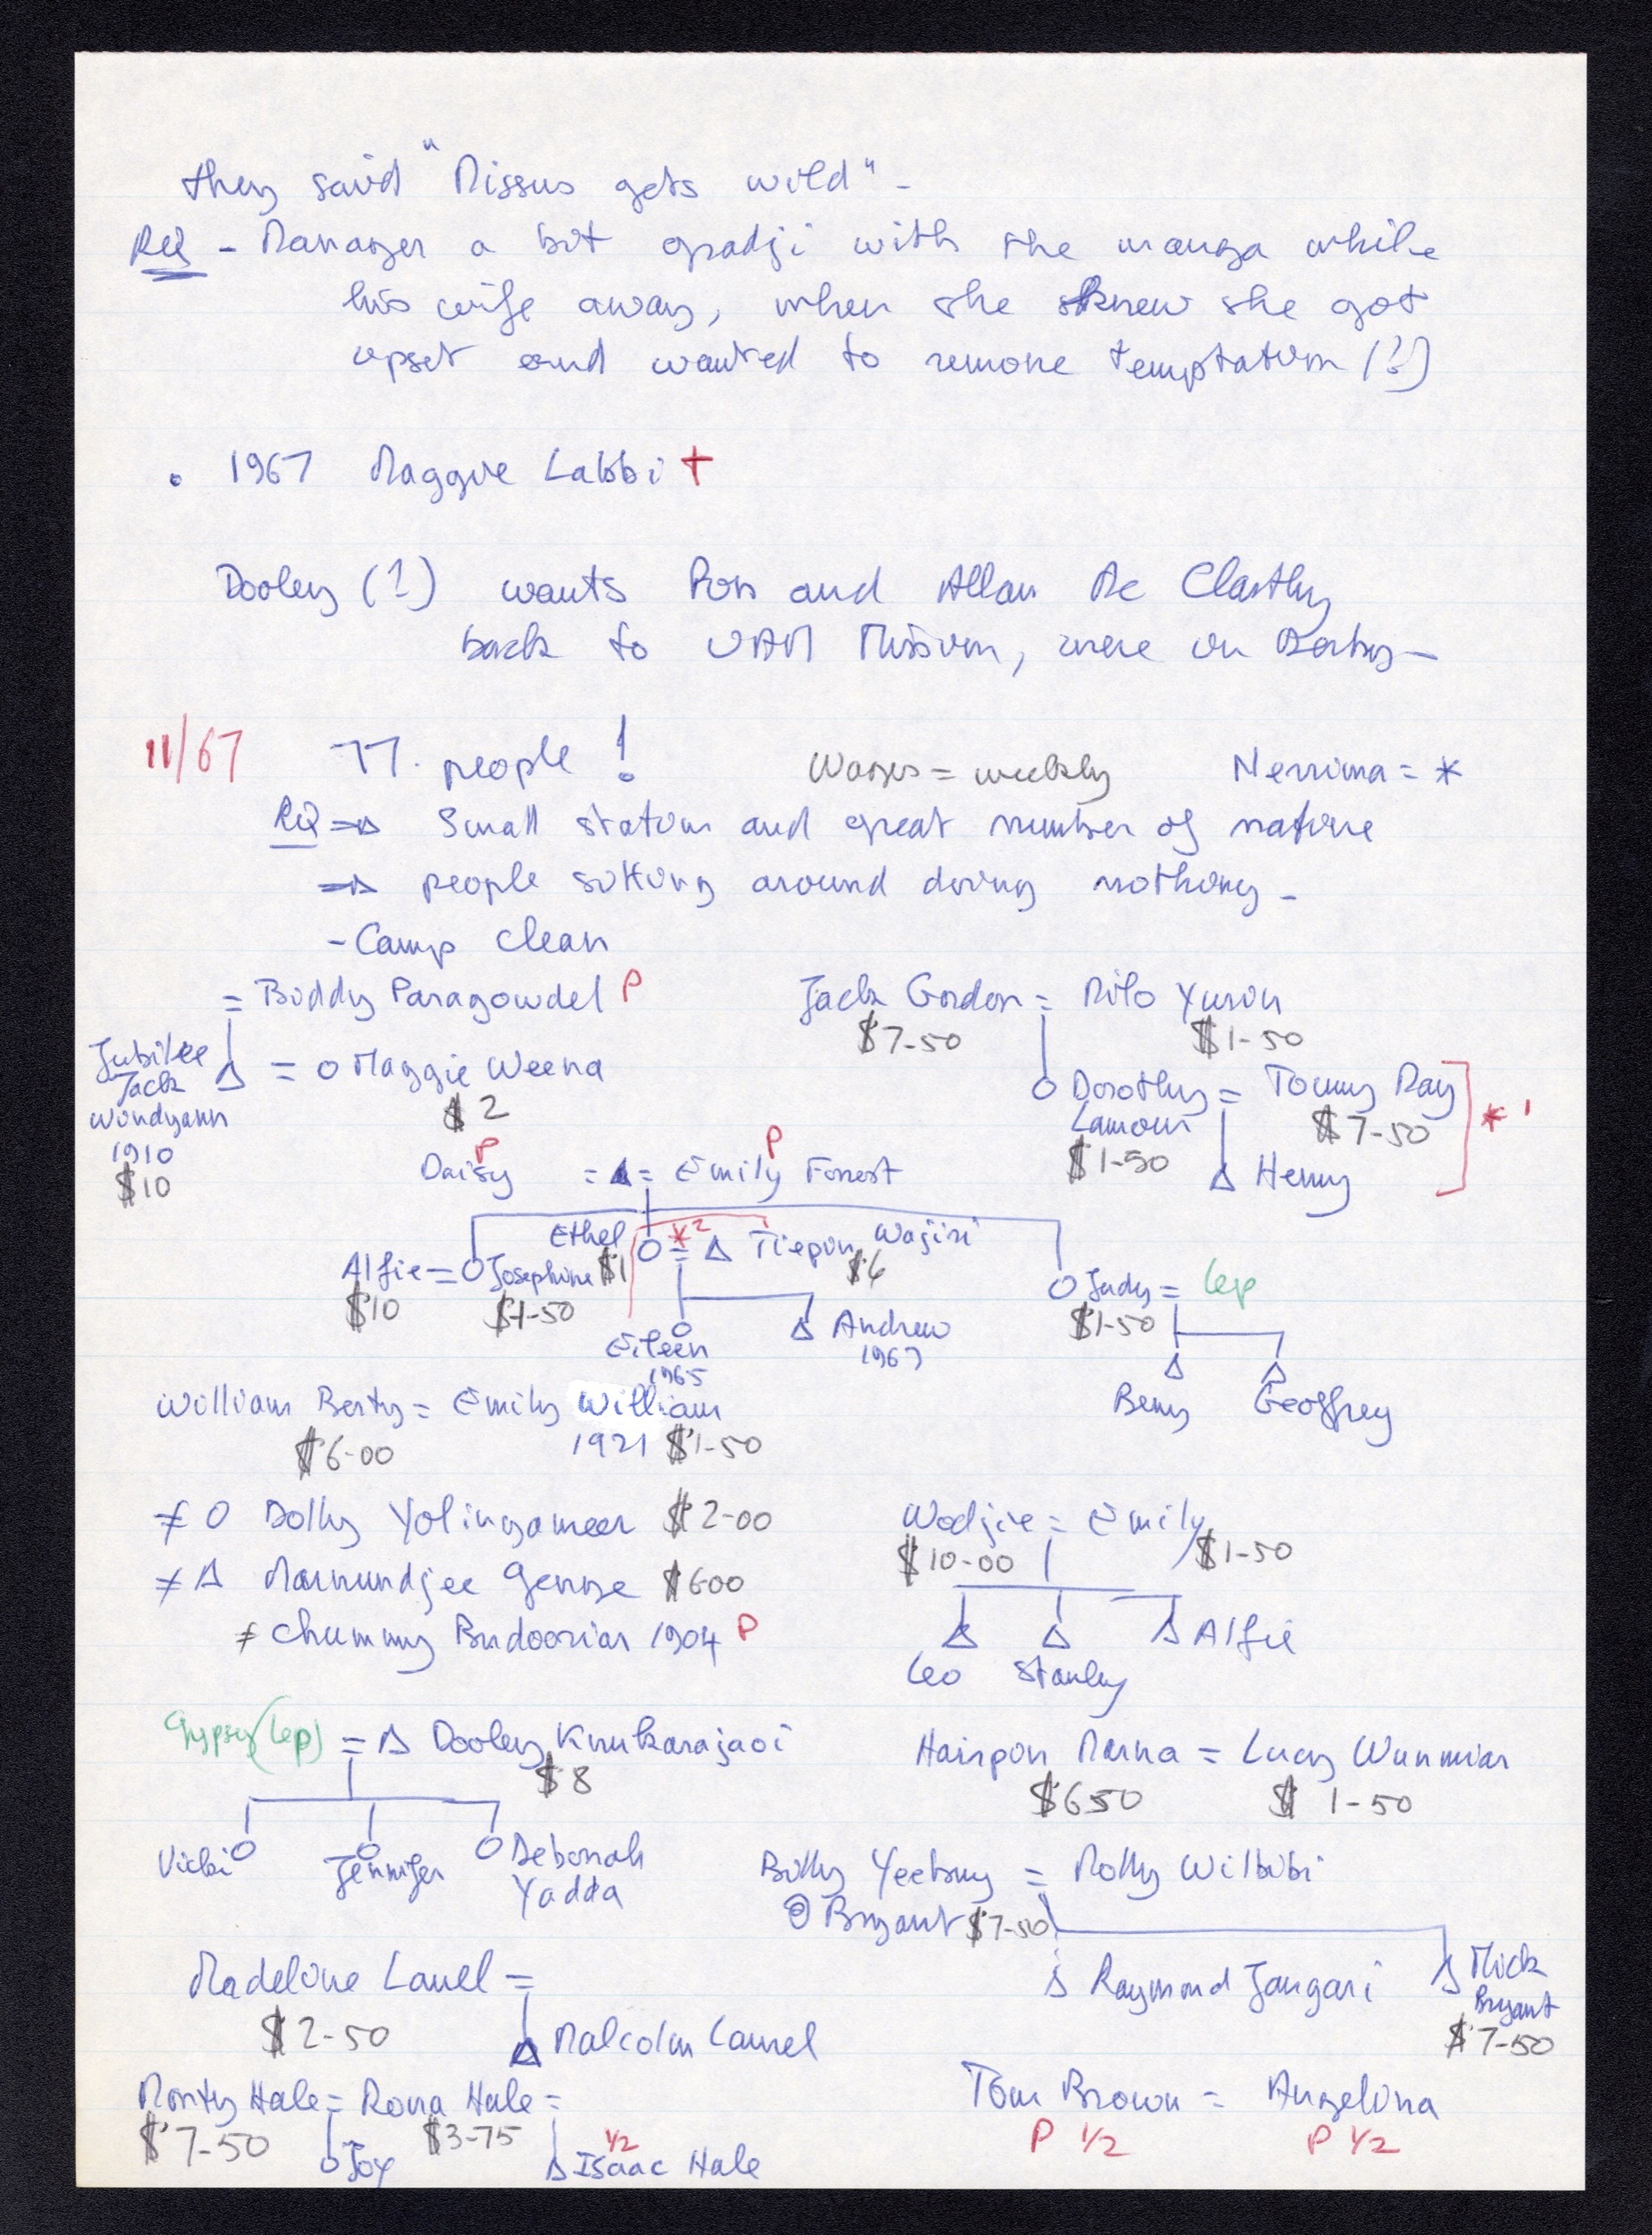 they said "Missus gets wild" -
RQ - Manager a bit gradji with the manga while
his wife away, when she knew she got
upset and wanted to remove temptation (?)
• 1967 Maggie Labbi +
Dooley (1) wants Ron and Allan Mc Clarthy
back to UAM Mission, were in Derby -
11/67 77. people ! Wages = weekly Nerrima = *
RQ => Small station and great number of native
=> people sitting around doing nothing -
- Camp clean
= Biddy Paragowdel P
Jubilee Jack Wondyann 1910 $10
Δ = O Maggie Weena
$2
Jack Gordon = Milo Yuwin
$7-50 $1-50
O Dorothy Lamour = Tommy Ray
$1-50 $7-50 *1
Δ Henry
Daisy P = Δ = Emily Forrest P
Alfie = O Josephine
$10 $1-50
Ethel $1 O *2 = Δ Tiepin Wajiri
$6
O Judy = Lep
$1-50
Eileen 1965
Δ Andrew 1967
Δ Beny Δ Geoffrey
William Berty = Emily William
$6-00 1921 $1-50
≠ O Dolly Yolingameer $2-00
≠ Δ Marnundjee George $600
≠ Chummy Budoorian 1904 P
Wodjie = Emily
$10-00 $1-50
Δ Leo Δ Stanley Δ Alfie
Gypsy (Lep) = Δ Dooley Knukarajaoi
$8
Vicki O Jennifer O O Deborah Yadda
Hairpin Marna = Lucy Wunmiar
$650 $1-50
Billy Yeebuy = Molly Wilbibi
Bryant $7-50
Δ Raymond Jangari
Δ Mick Bryant
$7-50
Madeline Laurel =
$2-50
Δ Malcolm Laurel
Monty Hale = Rona Hale =
$7-50 $3-75
O Joy Δ Isaac Hale 1/2
Tom Brown = Angelina
P 1/2 P 1/2